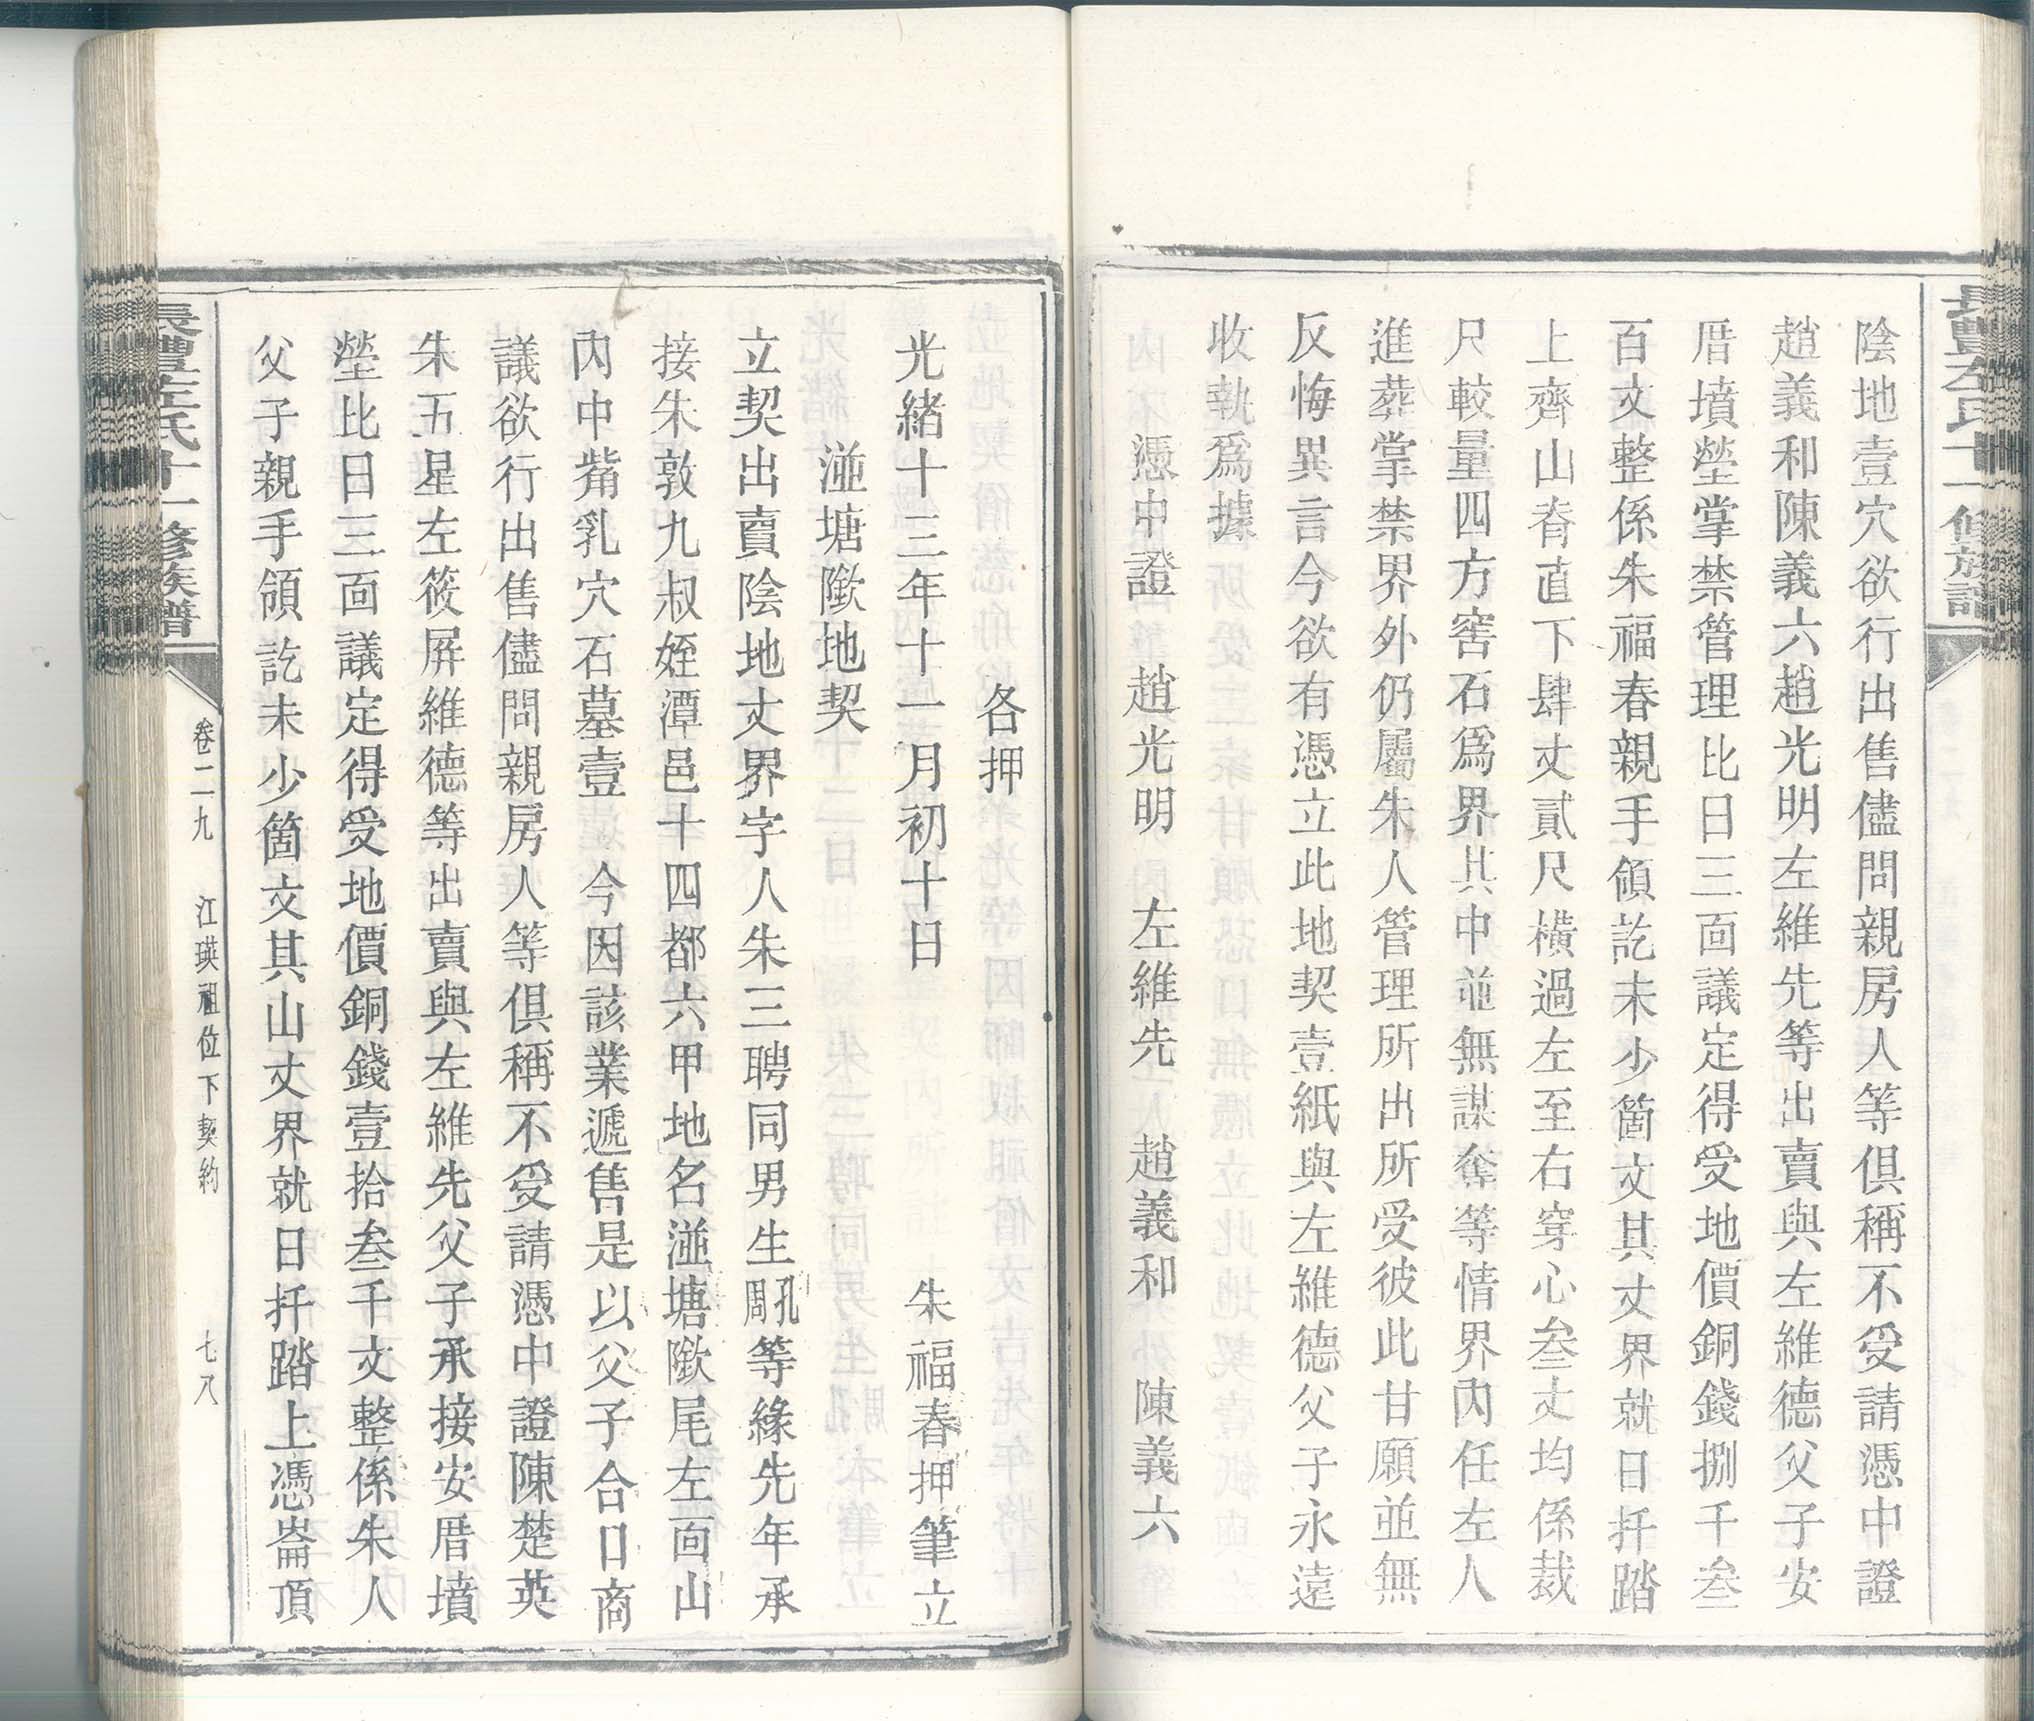 陰地壹穴欲行出售儘問親房人等俱稱不受請憑中證
趙義和陳義六趙光明左維先等出賣與左維德父子安
厝墳塋掌禁管理比日三面議定得受地價銅錢捌千叁
百文整係朱福春親手領訖未少箇文其丈界就日扦踏
上齊山脊直下肆丈貳尺橫過左至右穿心叁丈均係裁
尺較量四方窖石爲界其中並無謀奪等情界內任左人
進葬掌禁界外仍屬朱人管理所出所受彼此甘願並無
反悔異言今欲有憑立此地契壹紙與左維德父子永遠
收執爲據
憑中證 趙光明 左維先 趙義和 陳義六
各押
光緒十三年十一月初十日 朱福春押筆立
湴塘隞地契
立契出賣陰地丈界字人朱三聘同男生孔勛等緣先年承
接朱敦九叔姪潭邑十四都六甲地名湴塘隞尾左面山
內中觜乳穴石墓壹 今因該業遞售是以父子合口商
議欲行出售儘問親房人等俱稱不受請憑中證陳楚英
朱五星左筱屏維德等出賣與左維先父子承接安厝墳
塋比日三面議定得受地價銅錢壹拾叁千文整係朱人
父子親手領訖未少箇文其山丈界就日扦踏上憑崙頂
左氏十一修族譜
卷二九 江瑛祖位下契約 七八